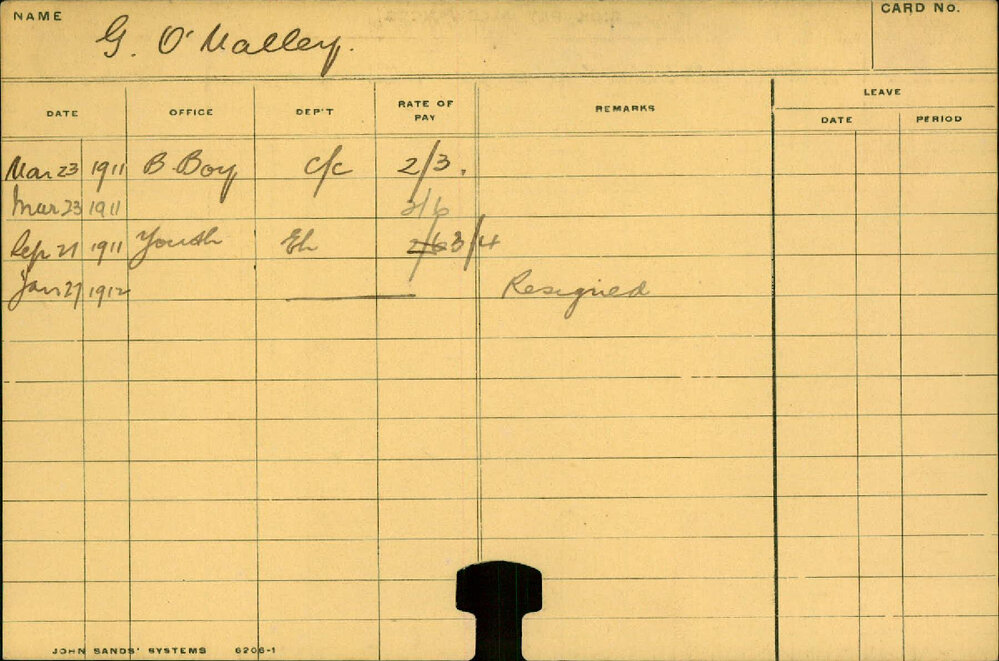 NAME G. O'Malley. CARD No.
DATE OFFICE DEP'T RATE OF PAY REMARKS LEAVE
DATE PERIOD
Mar 23 1911 B. Boy c/c 2/3.
Mar 23 1911 2/6
Sep 21 1911 Youth Eh 2/6 3/4
Jan 27 1912 Resigned
JOHN SANDS' SYSTEMS 6206-1